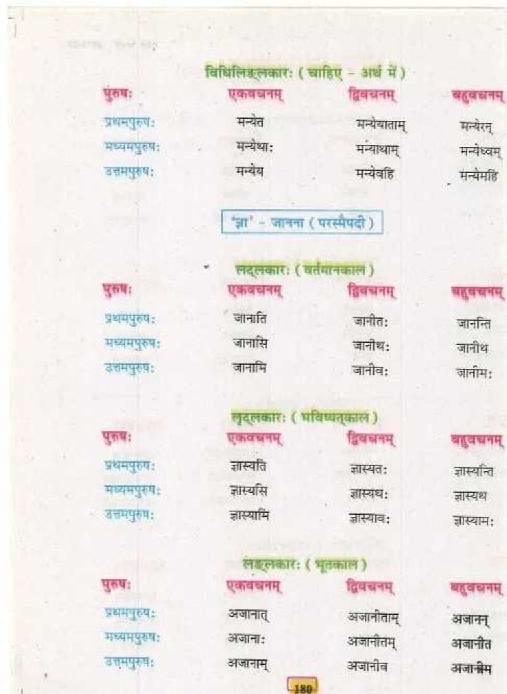 विधिलिङ्लकारः ( चाहिए - अर्थ में )
पुरुषः एकवचनम् द्विवचनम् बहुवचनम्
प्रथमपुरुषः मन्येत मन्येयाताम् मन्येरन्
मध्यमपुरुषः मन्येथाः मन्याथाम् मन्येध्वम्
उत्तमपुरुषः मन्येय मन्येवहि मन्येमहि
'ज्ञा' - जानना ( परस्मैपदी )
लट्लकारः ( वर्तमानकाल )
पुरुषः एकवचनम् द्विवचनम् बहुवचनम्
प्रथमपुरुषः जानाति जानीतः जानन्ति
मध्यमपुरुषः जानासि जानीथः जानीथ
उत्तमपुरुषः जानामि जानीवः जानीमः
लृट्लकारः ( भविष्यत्काल )
पुरुषः एकवचनम् द्विवचनम् बहुवचनम्
प्रथमपुरुषः ज्ञास्यति ज्ञास्यतः ज्ञास्यन्ति
मध्यमपुरुषः ज्ञास्यसि ज्ञास्यथः ज्ञास्यथ
उत्तमपुरुषः ज्ञास्यामि ज्ञास्यावः ज्ञास्यामः
लङ्लकारः ( भूतकाल )
पुरुषः एकवचनम् द्विवचनम् बहुवचनम्
प्रथमपुरुषः अजानात् अजानीताम् अजानन्
मध्यमपुरुषः अजानाः अजानीतम् अजानीत
उत्तमपुरुषः अजानाम् अजानीव अजानीम
180